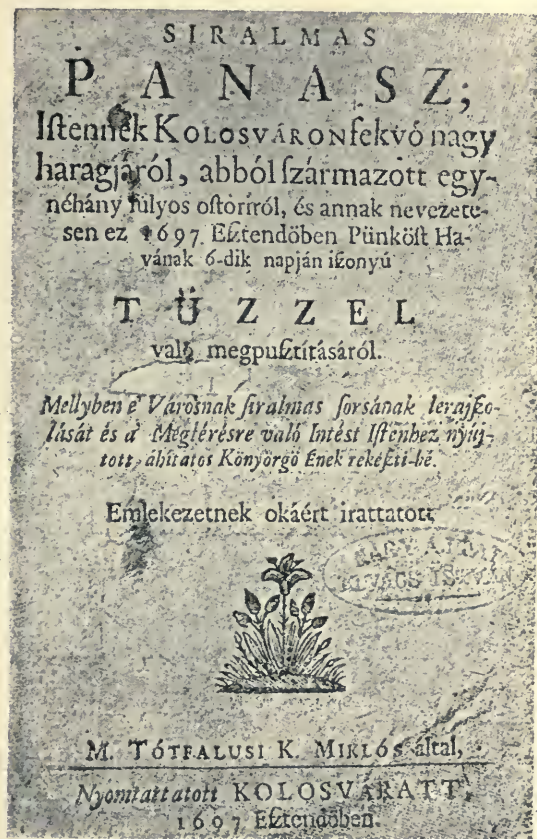 SIRALMAS
PANASZ;
Iſtennek KOLOSVÁRON fekvő nagy
haragjáról, abból ſzármazott egy-
néhány ſúlyos oſtoriról, és annak nevezete-
sen ez 1697. Eſztendőben Pünköſt Ha-
vának 6-dik napján iſzonyú
TŰZZEL
való megpuſztitásáról.
Mellyben é Városnak ſiralmas ſorsának lerajſzo-
lását és a' Megtérésre való Intést Iſtenhez nyúj-
tott áhitatos Könyörgő Ének rekeſzti-bé.
Emlekezetnek okáért irattatott
NAGY AJTAI
KOVÁCS ISTVÁN
M. TÓTFALUSI K. MIKLÓS által,
Nyomtattatott KOLOSVÁRATT,
1697 Eſztendőben.